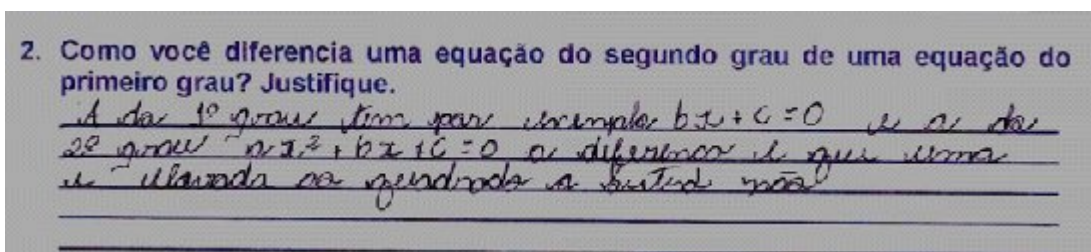 2. Como você diferencia uma equação do segundo grau de uma equação do
primeiro grau? Justifique.
A da 1º grau tem por exemplo bx + c = 0 e a da
2º grau ax² + bx + c = 0 a diferença é que uma
é elevada ao quadrado a não